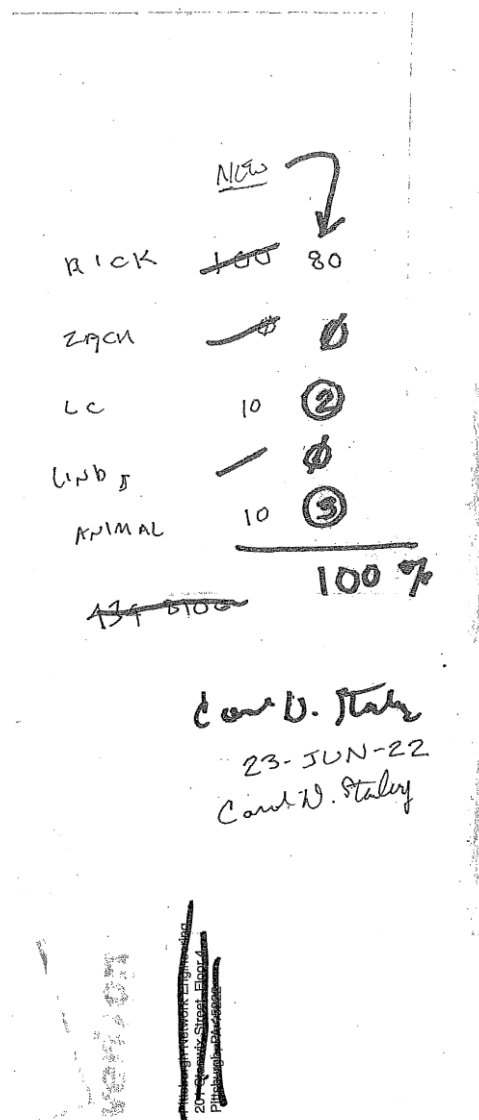 NEW
RICK 100 80
ZACH Ø Ø
LC 10 2
LINDI Ø
ANIMAL 10 3
100 %
434 8100
Carol D. Staley
23-JUN-22
Carol D. Staley
verizon
Pittsburgh Network Engineering
Street, Floor 4
Pittsburgh, PA 15222